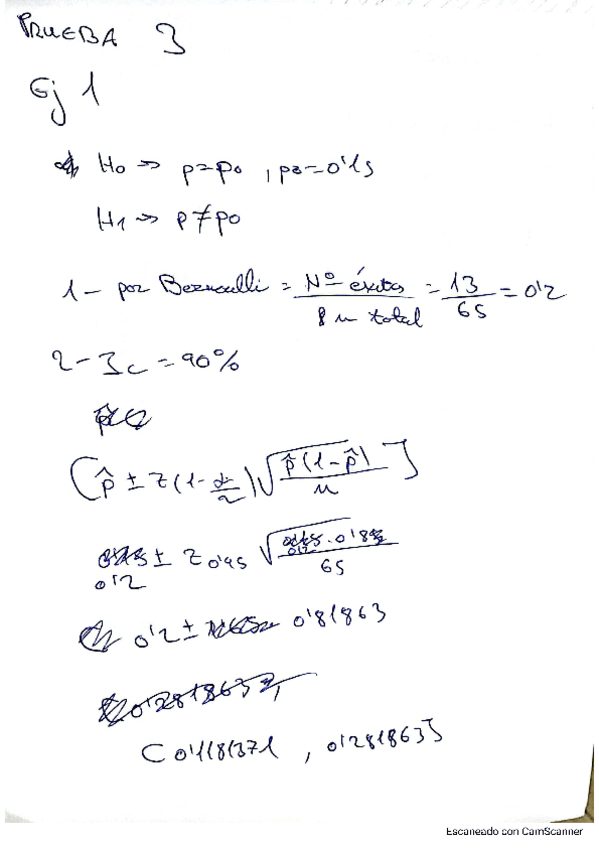 PRUEBA 3
Ej 1
H0 => p=p0 , p0=0'15
H1 => p≠p0
1- por Bernoulli = Nº éxitos / n total = 13/65 = 0'2
2- Ic = 90%
[p̂ ± z(1-α/2)√(p̂(1-p̂)/n)]
0'2 ± z0'95 √(0'2·0'8/65)
0'2 ± 0'81863
(0'1181371 , 0'281863]
Escaneado con CamScanner